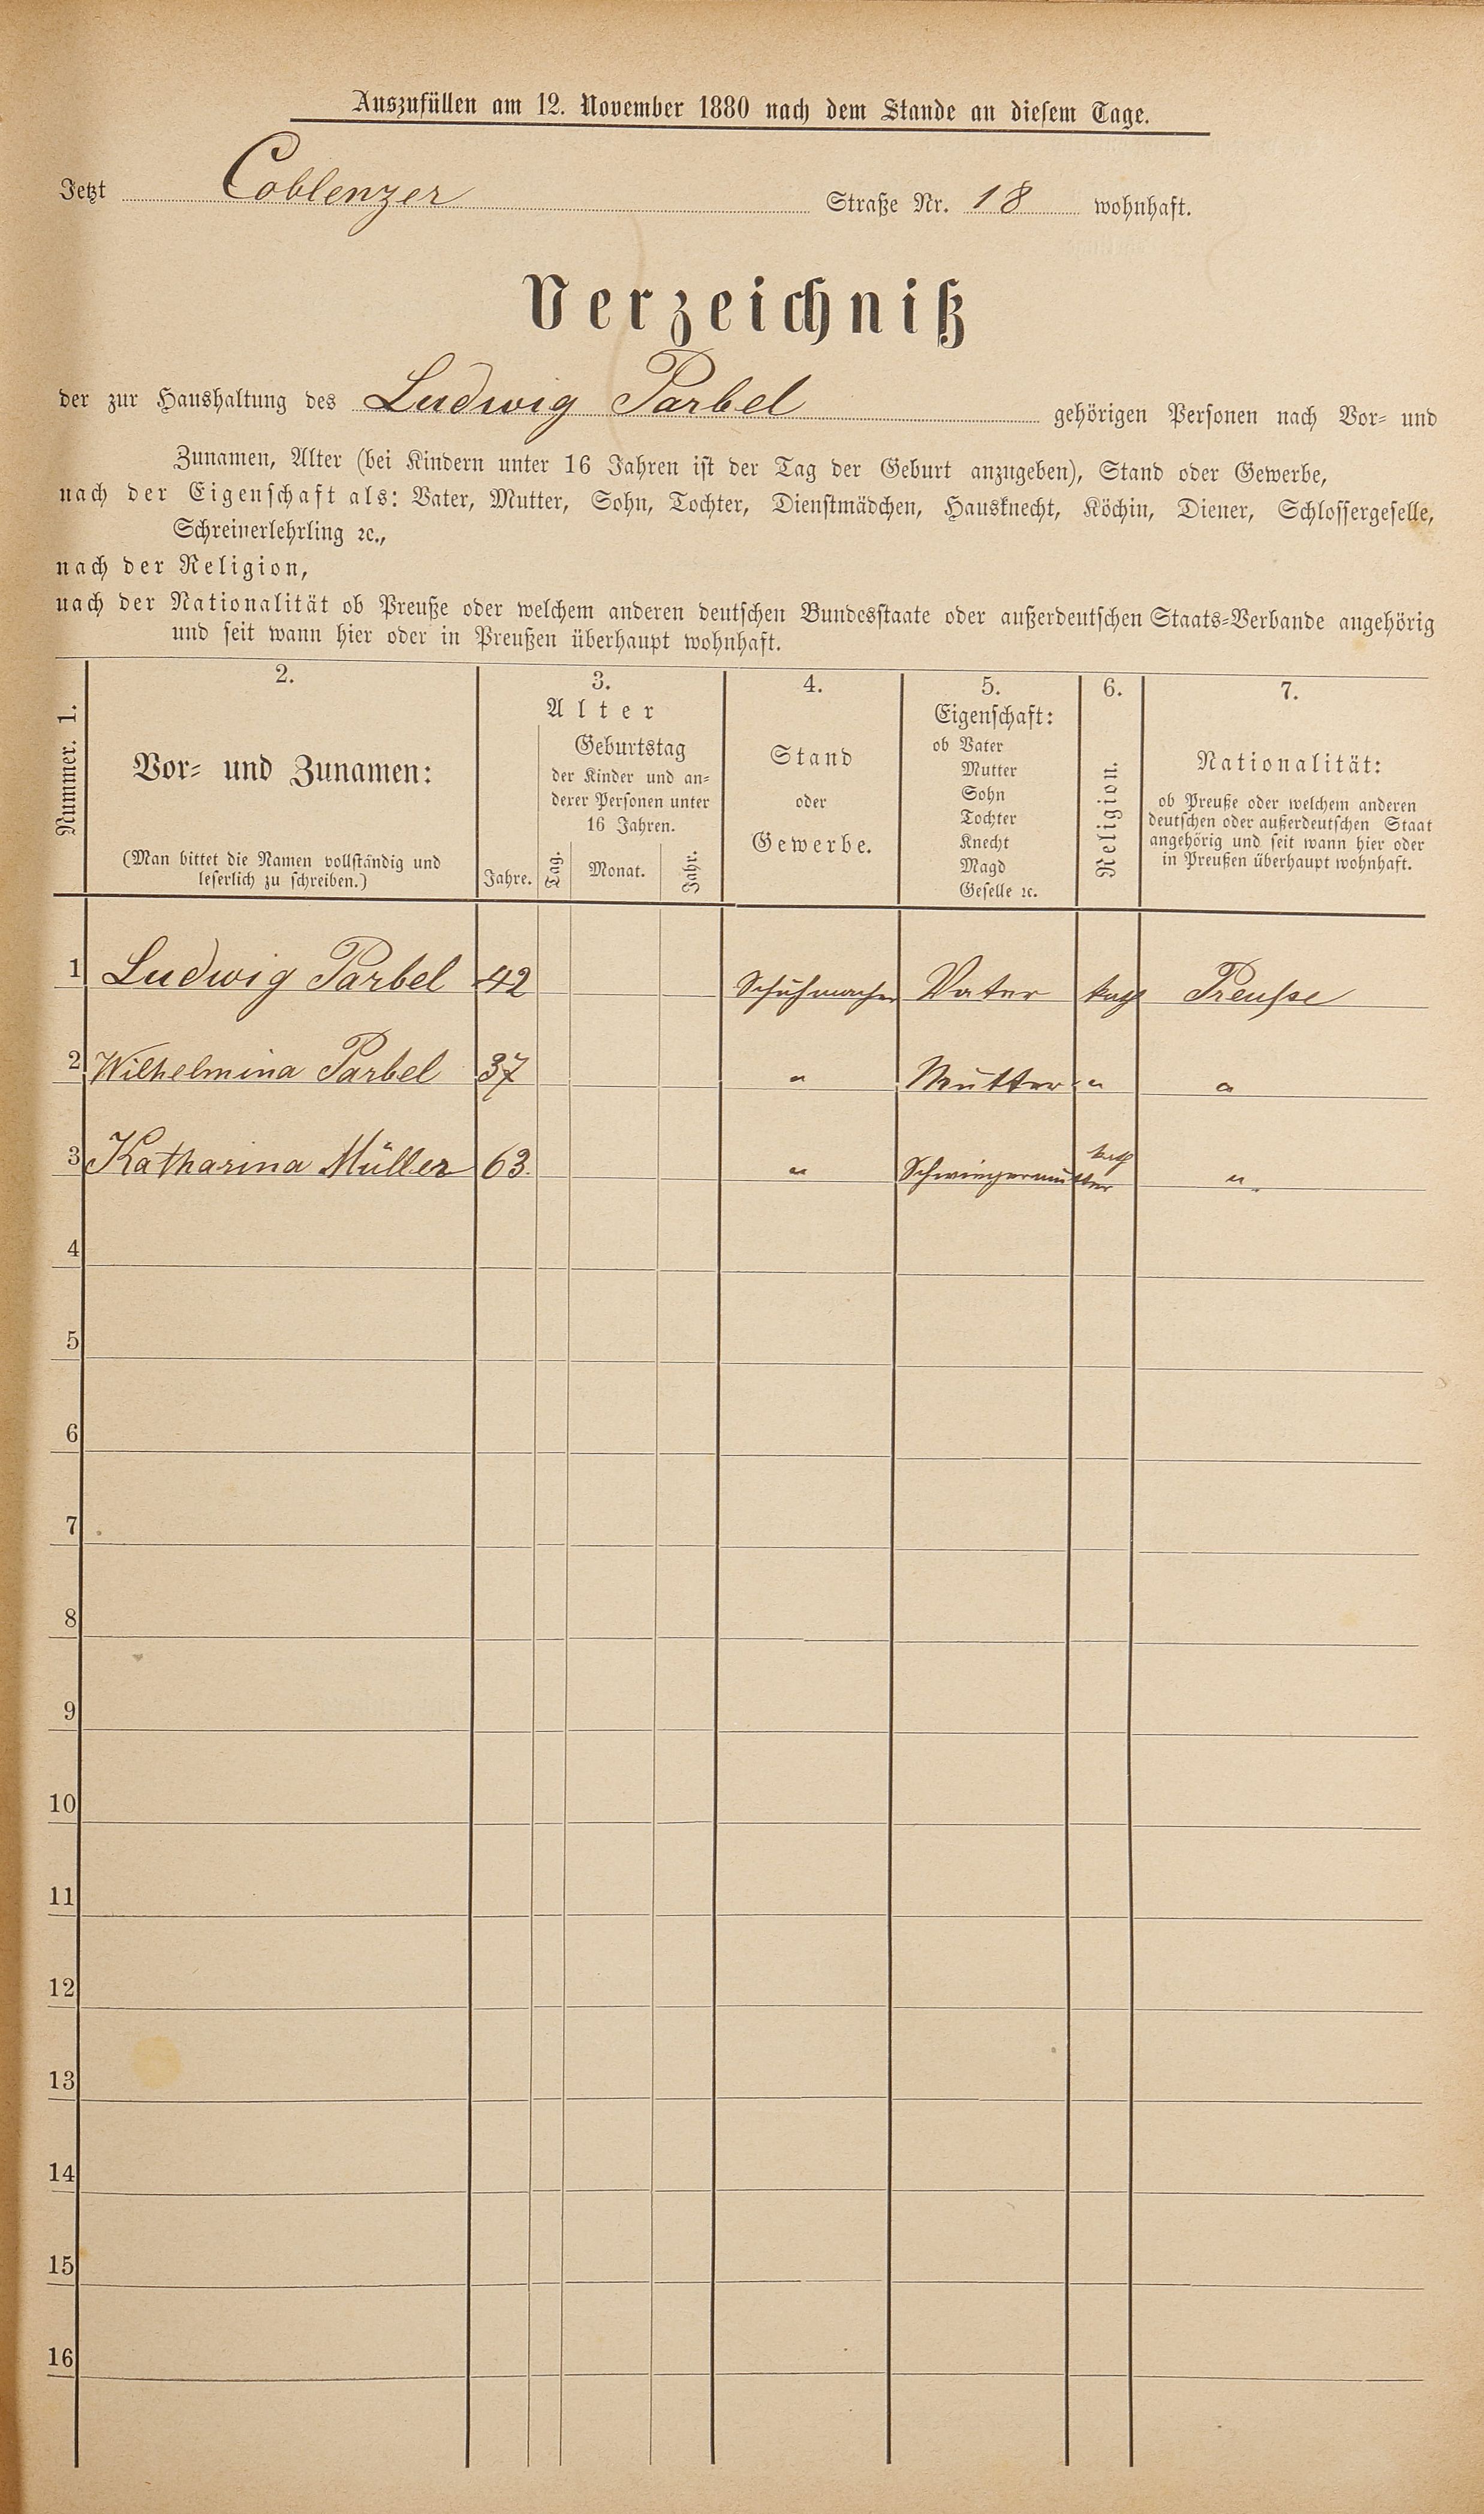 Auszufüllen am 12. November 1880 nach dem Stande an diesem Tage.
Jetzt Coblenzer Straße Nr. 18 wohnhaft.
Verzeichniß
der zur Haushaltung des Ludwig Parbel gehörigen Personen nach Vor- und
Zunamen, Alter (bei Kindern unter 16 Jahren ist der Tag der Geburt anzugeben), Stand oder Gewerbe,
nach der Eigenschaft als: Vater, Mutter, Sohn, Tochter, Dienstmädchen, Hausknecht, Köchin, Diener, Schlossergeselle,
Schreinerlehrling ꝛc.,
nach der Religion,
nach der Nationalität ob Preuße oder welchem anderen deutschen Bundesstaate oder außerdeutschen Staats-Verbande angehörig
und seit wann hier oder in Preußen überhaupt wohnhaft.
Nummer. 1.
2.
Vor- und Zunamen:
(Man bittet die Namen vollständig und
leserlich zu schreiben.)
3.
Alter
Jahre.
Geburtstag
der Kinder und an-
derer Personen unter
16 Jahren.
Tag. Monat. Jahr.
4.
Stand
oder
Gewerbe.
5.
Eigenschaft:
ob Vater
Mutter
Sohn
Tochter
Knecht
Magd
Geselle ꝛc.
6.
Religion.
7.
Nationalität:
ob Preuße oder welchem anderen
deutschen oder außerdeutschen Staat
angehörig und seit wann hier oder
in Preußen überhaupt wohnhaft.
1 Ludwig Parbel 42 Schuhmacher Vater kath Preuße
2 Wilhelmina Parbel 37 " Mutter " "
3 Katharina Müller 63. " Schwiegermutter kath "
4
5
6
7
8
9
10
11
12
13
14
15
16